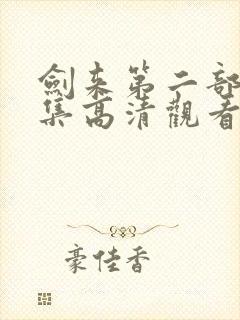 劍来第二部
集高清觀看
豪佳香